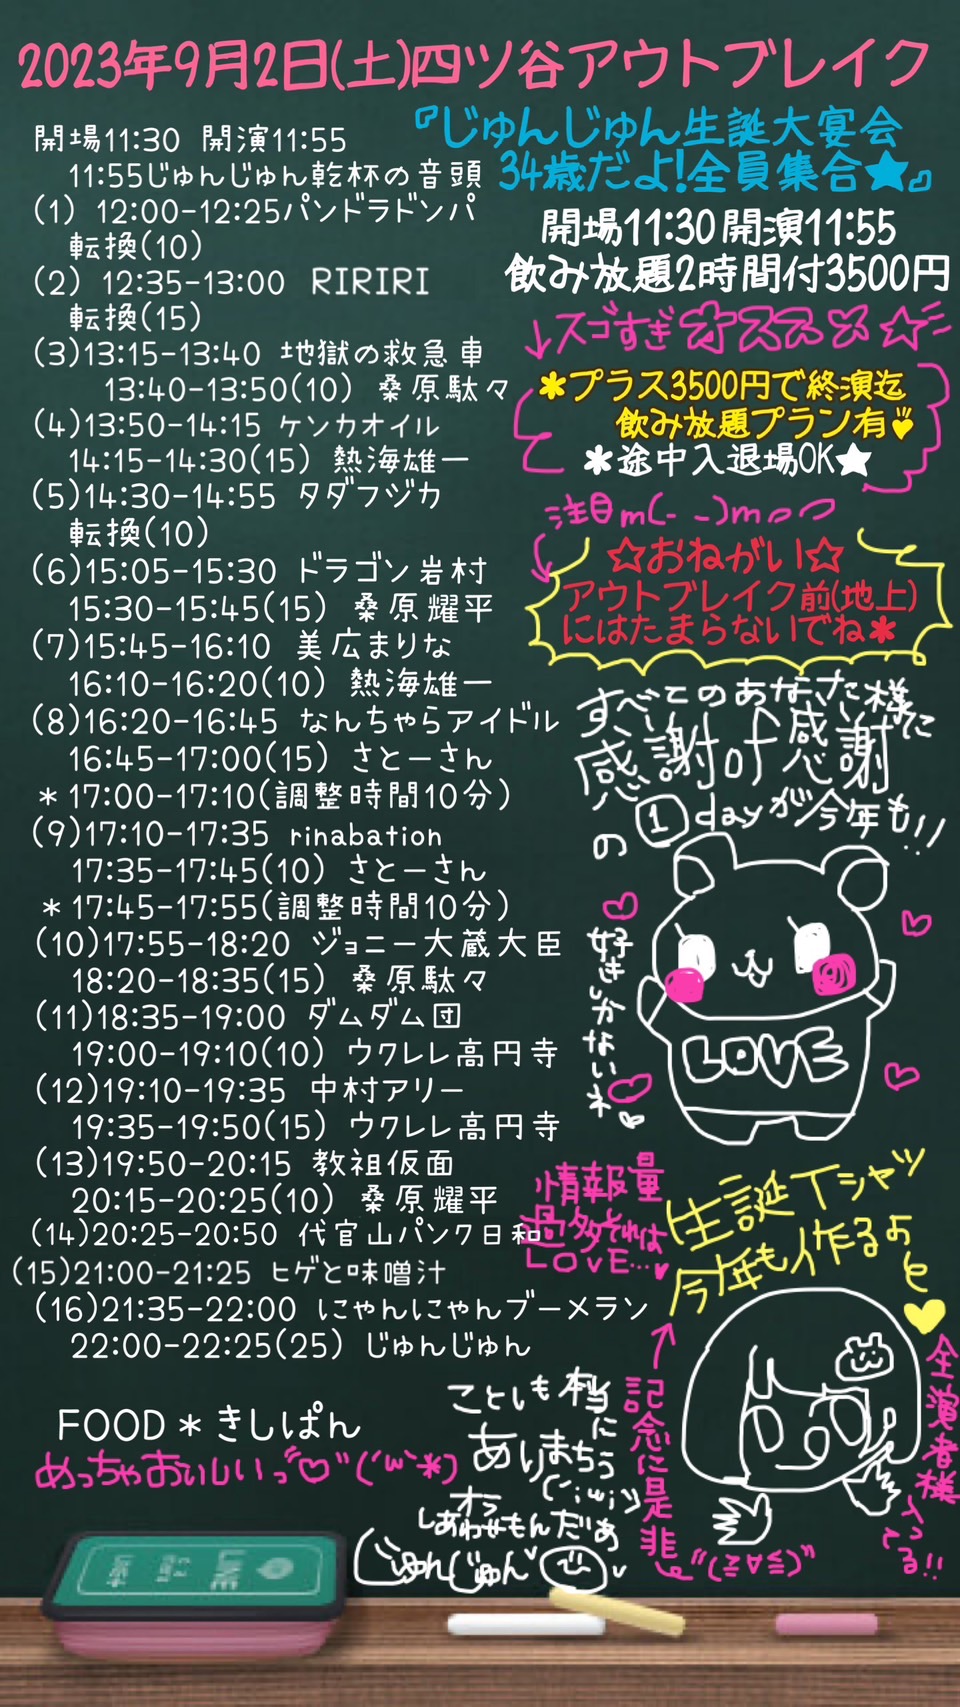 2023年9月2日(土)四ツ谷アウトブレイク
『じゅんじゅん生誕大宴会
34歳だよ!全員集合★』
開場11:30 開演11:55
飲み放題2時間付3500円
↓スゴすぎオススメ☆
*プラス3500円で終演迄
飲み放題プラン有
*途中入退場OK★
注目m(- -)m
☆おねがい☆
アウトブレイク前(地上)
にはたまらないでね*
開場11:30 開演11:55
11:55じゅんじゅん乾杯の音頭
(1) 12:00-12:25パンドラドンパ
転換(10)
(2) 12:35-13:00 RIRIRI
転換(15)
(3)13:15-13:40 地獄の救急車
13:40-13:50(10) 桑原駄々
(4)13:50-14:15 ケンカオイル
14:15-14:30(15) 熱海雄一
(5)14:30-14:55 タダフジカ
転換(10)
(6)15:05-15:30 ドラゴン岩村
15:30-15:45(15) 桑原耀平
(7)15:45-16:10 美広まりな
16:10-16:20(10) 熱海雄一
(8)16:20-16:45 なんちゃらアイドル
16:45-17:00(15) さとーさん
*17:00-17:10(調整時間10分)
(9)17:10-17:35 rinabation
17:35-17:45(10) さとーさん
*17:45-17:55(調整時間10分)
(10)17:55-18:20 ジョニー大蔵大臣
18:20-18:35(15) 桑原駄々
(11)18:35-19:00 ダムダム団
19:00-19:10(10) ウクレレ高円寺
(12)19:10-19:35 中村アリー
19:35-19:50(15) ウクレレ高円寺
(13)19:50-20:15 教祖仮面
20:15-20:25(10) 桑原耀平
(14)20:25-20:50 代官山パンク日和
(15)21:00-21:25 ヒゲと味噌汁
(16)21:35-22:00 にゃんにゃんブーメラン
22:00-22:25(25) じゅんじゅん
すべてのあなた様に
感謝at感謝
の1dayが今年も!!
好きしかないネ
LOVE
情報量
過多それは
LOVE…
生誕Tシャツ
今年も作るよ
↑記念に是非
全演者様
入ってる!!
FOOD*きしぱん
めっちゃおいしいっ♡"(´ω`*)
ことしも本当
に
ありまちう
(´;ω;`)
オラ
しあわせもんだぁ
じゅんじゅん
"(≧∀≦)"